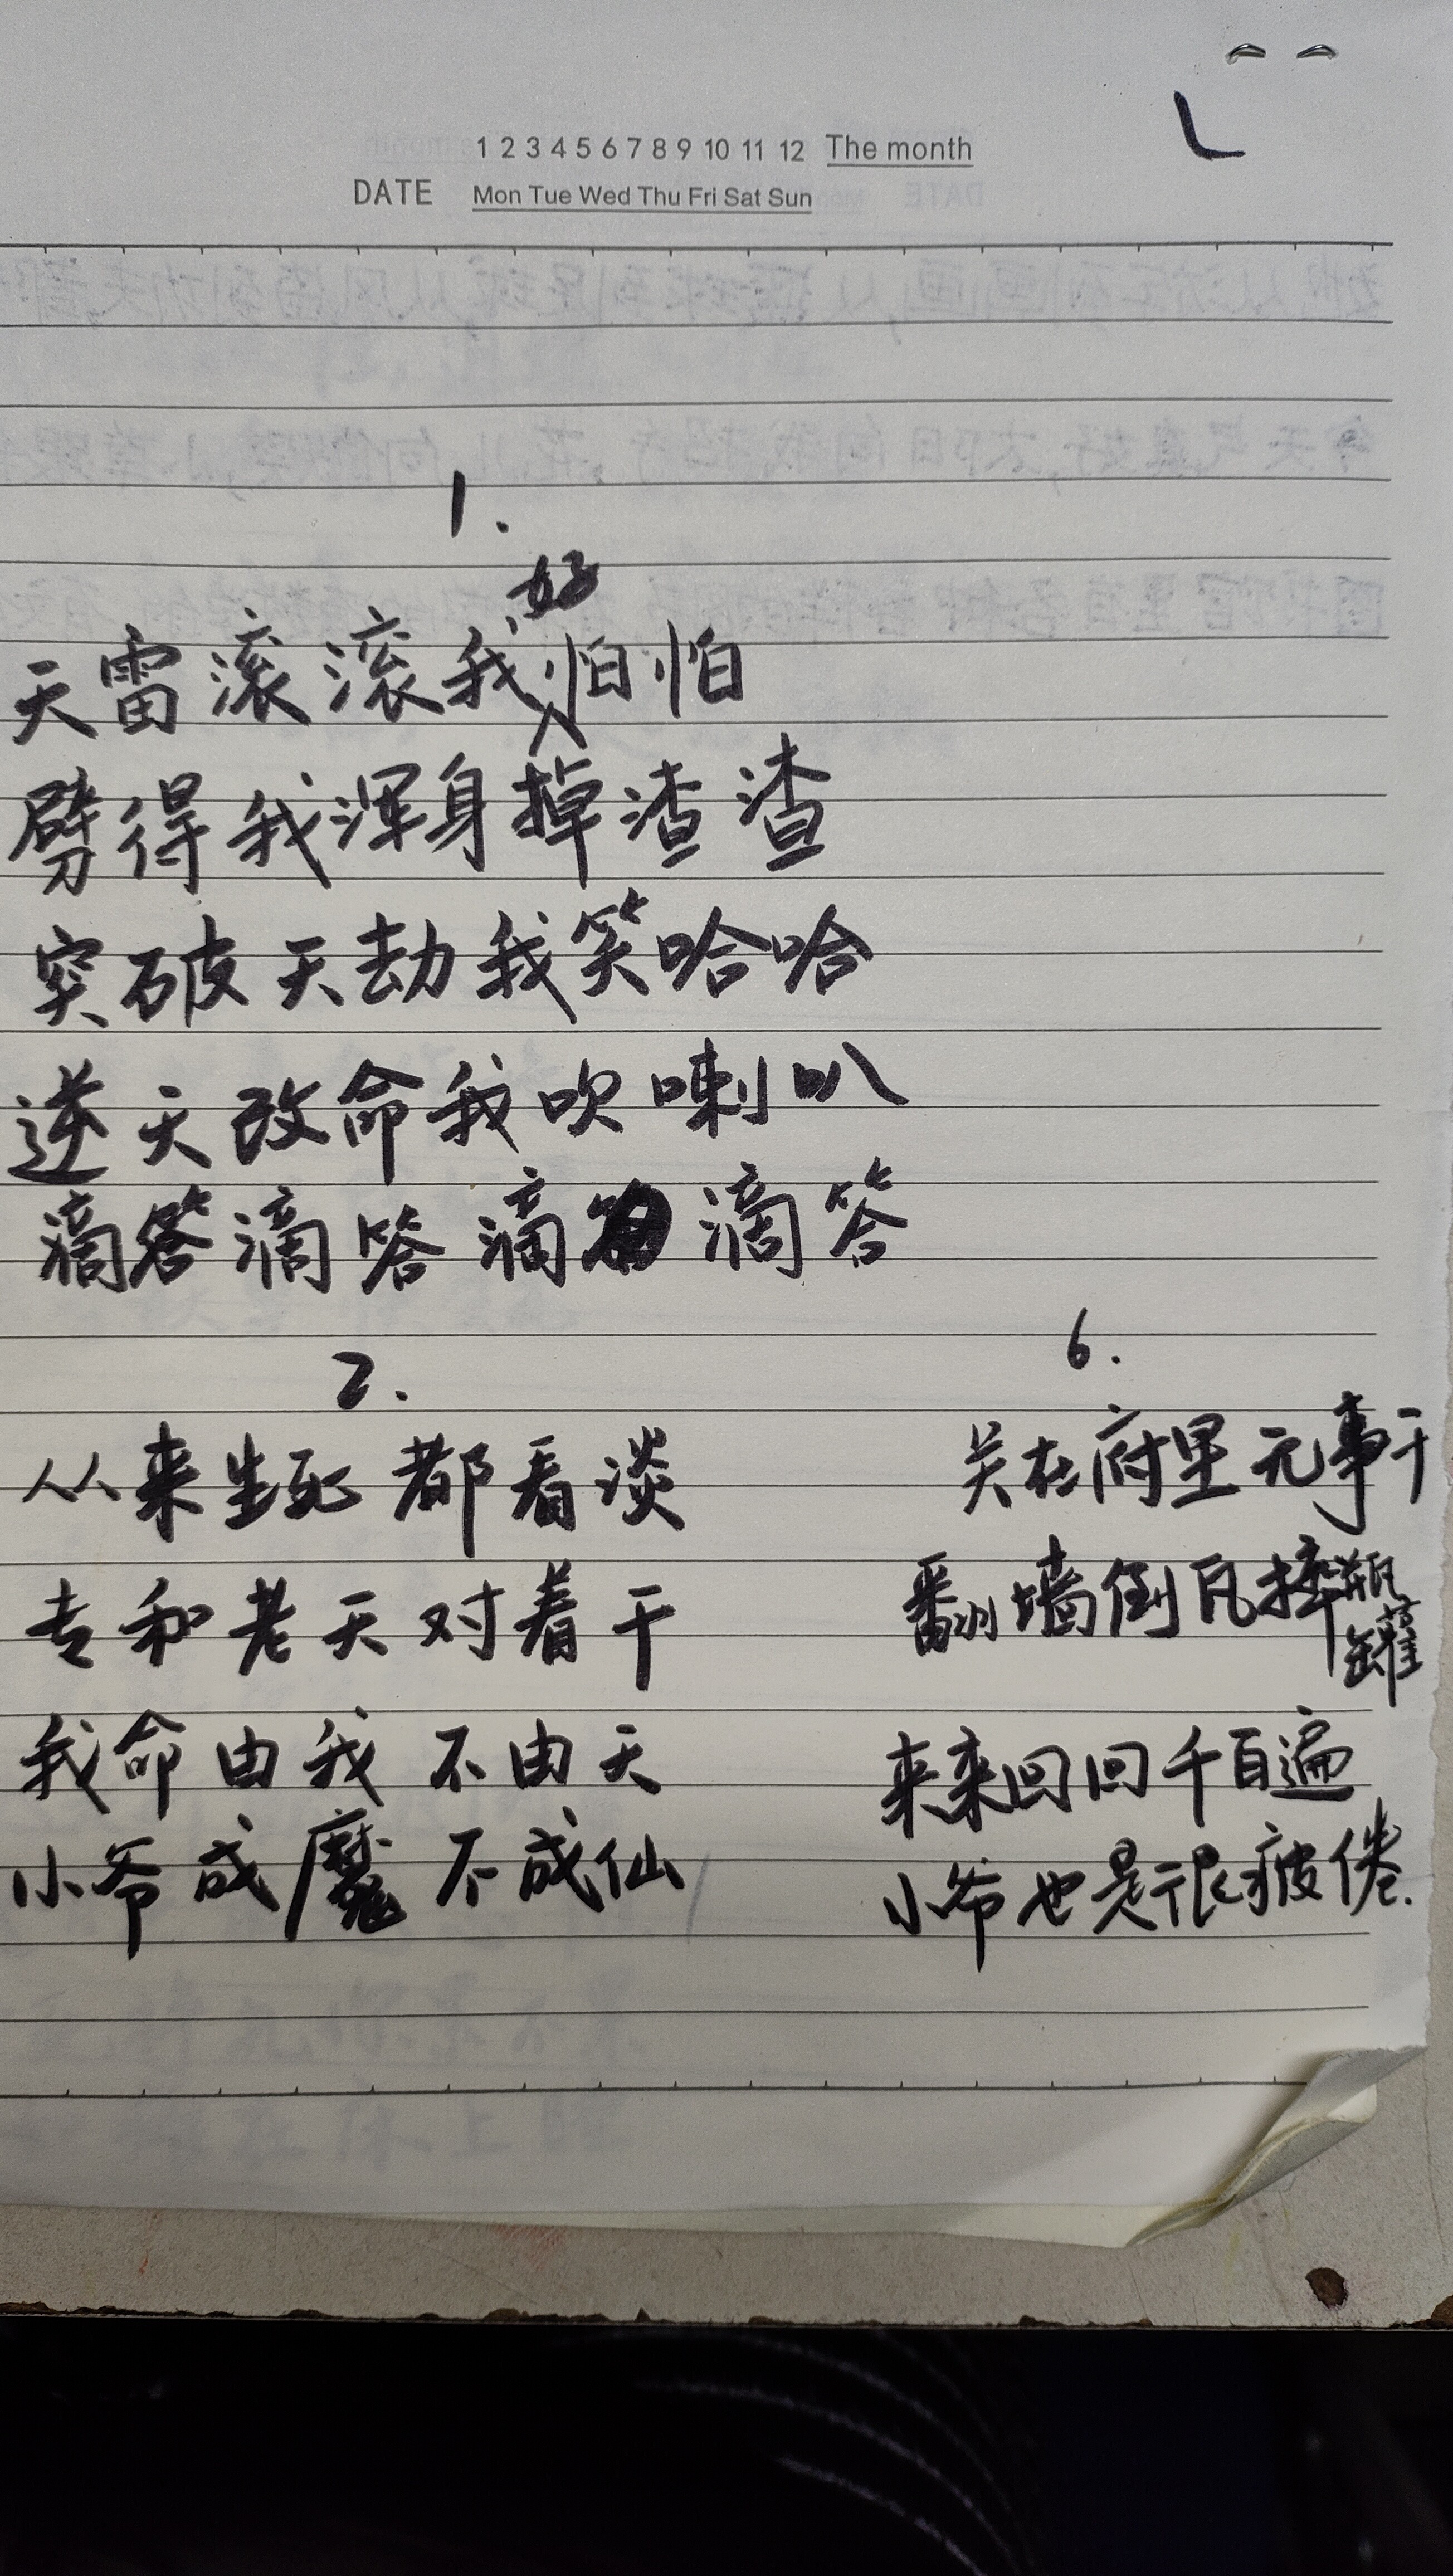 1 2 3 4 5 6 7 8 9 10 11 12 The month
DATE Mon Tue Wed Thu Fri Sat Sun
1.
天雷滚滚我好怕怕
劈得我浑身掉渣渣
突破天劫我笑哈哈
逆天改命我吹喇叭
滴答滴答滴滴答
2.
从来生死都看淡
专和老天对着干
我命由我不由天
小爷成魔不成仙
6.
关在府里无事干
翻墙倒瓦摔瓶罐
来来回回千百遍
小爷也是很疲倦.